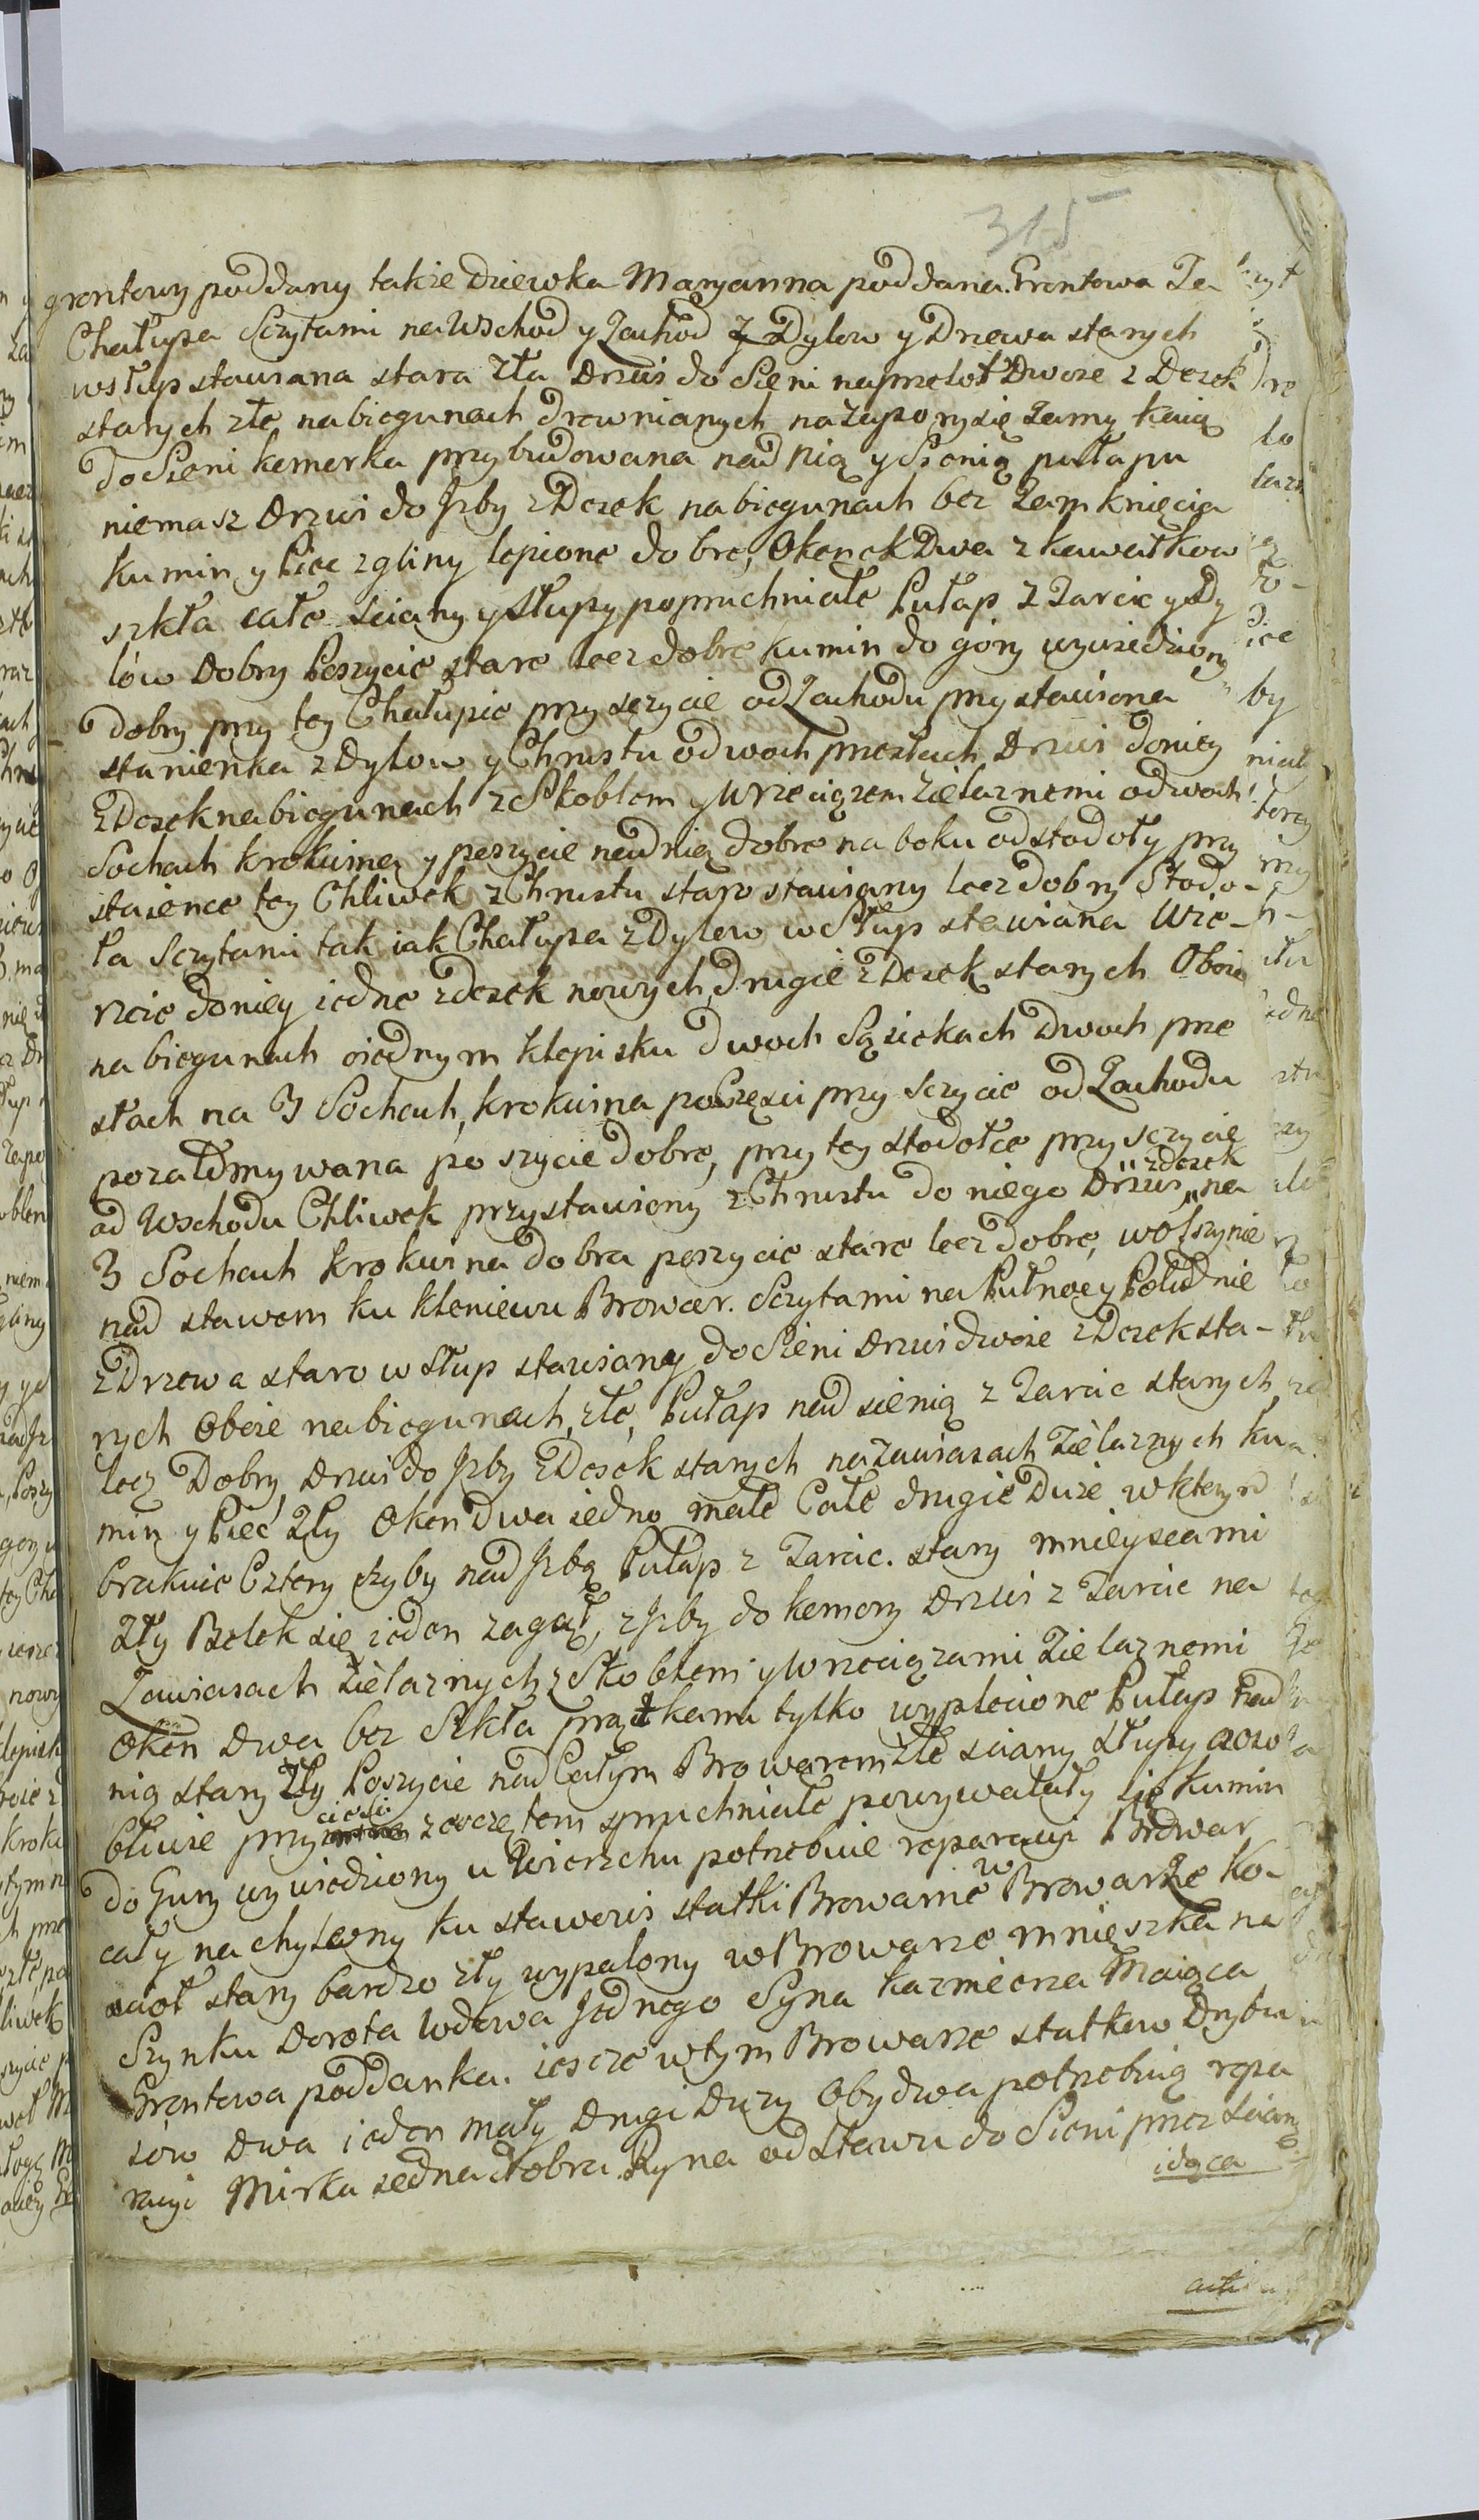 315
grontowy poddany takze dziewka Maryanna poddana Grontowa Ta
Chałupa Sczytami na Wschod y Zachod z Dylow y Drzewa starych
wsłup stawiana stara zła Drzwi do Sieni naprzelot Dwoie z Desek
starych złe na biegunach drewnianych na zapory się zamy kaią
do Sieni komorka przybudowana nad nią y Sienią pułapu
niemasz Drzwi do Jzby z Desek na biegunach bez Zamknięcia
Kumin y Piec z gliny lepione dobre, Okenek Dwa z kawałkow
szkła całe sciany y słupy popruchniałe Pułap z Tarcic y Dy
lów Dobry Poszycie stare lecz dobre kumin do góry wywiedziony
dobry przy tey Chałupie przy sczycie od Zachodu przystawiona
stanienka z Dylow y Chrustu o dwoch przesłach Drzwi do niey
z Desek na biegunach z Skoblem y Wrzeciązem żielaznemi o dwoch
Sochach krokwina y poszycie nad nią dobre na boku od stodoły przy
staience tey Chliwek z Chrustu staro stawiany lecz dobry Stodo-
ła Sczytami tak iak Chałupa z Dylow w Słup stawiana Wie-
rzeie do niey iedne z desek nowych, drugie z Desek starych Oboie
na biegunach o iednym klepisku dwoch Sąsiekach Dwoch prze
słach na 3 Sochach, krokwina poczęsci przy Sczycie od Zachodu
pozałomywana poszycie dobre, przy tey stodołce przy sczycie
od Wschodu Chliwek przystawiony z Chrustu do niego Drzwi z desek na
3 Sochach krokwina dobra poszycie stare lecz dobre, w olszynie
nad stawem ku kleniewu Browar. Sczytami na Pułnoc y Południe
z Drzewa staro w Słup stawiany do Sieni Drzwi dwoie z Desek sta-
rych Oboie na biegunach, złe, Pułap nad sienią z Tarcic starych
lecz Dobry, Drzwi do Jzby z Desek starych na zawiasach żielaznych ku
min y Piec zły Oken Dwa iedno małe Całe drugie Duże w ktorym
brakuie Cztery szyby nad Jzbą Pułap z Tarcic. stary mnieyscami
zły Belek się ieden zagął, z Jzby do komory Drzwi z Tarcic na
Zawiasach żielaznych z Skoblem y Wrzeciązami żielaznemi
Oken Dwa bez Szkła prątkami tylko wyplecione Pułap nad
nią stary zły Poszycie nad Całym Browarem złe sciany słupy
przy ziemi spruchniałe powywalały się kumin
do Gury wywiedziony u Wierzchu potrzebuie reparacyi Browar
cały nachylony ku stawowi statki Browarne w Browarze Ko-
cioł stary bardzo zły wypalony w Browarze mnieszka na
Szynku Dorota Wdowa Jednego Syna kazmierza Maiąca
Grontowa poddanka. iescze w tym Browarze statkow Drybu
sów Dwa ieden mały Drugi Duży Obydwa potrzebuią repa
racyi Mirka iedna dobra Ryna od stawu do Sieni przez Scianę
idąca